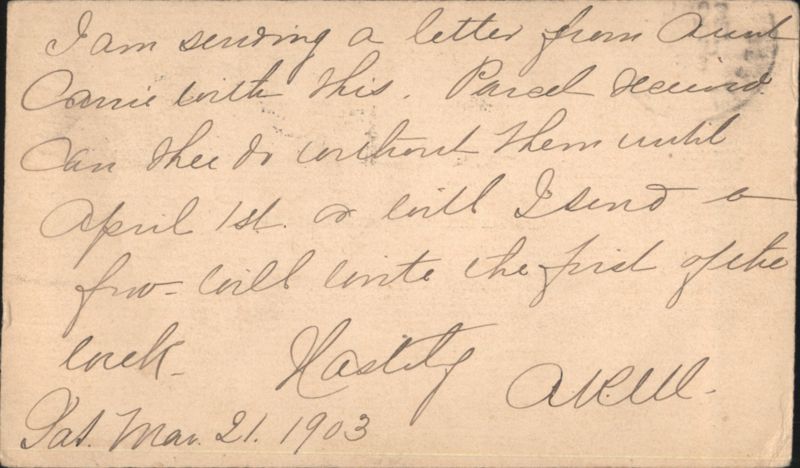 I am sending a letter from Aunt
Carrie with this. Parcel received
Can thee do without them until
April 1st. or will I send a
few - will write the first of the
week - Hastily
Sat. Mar. 21. 1903